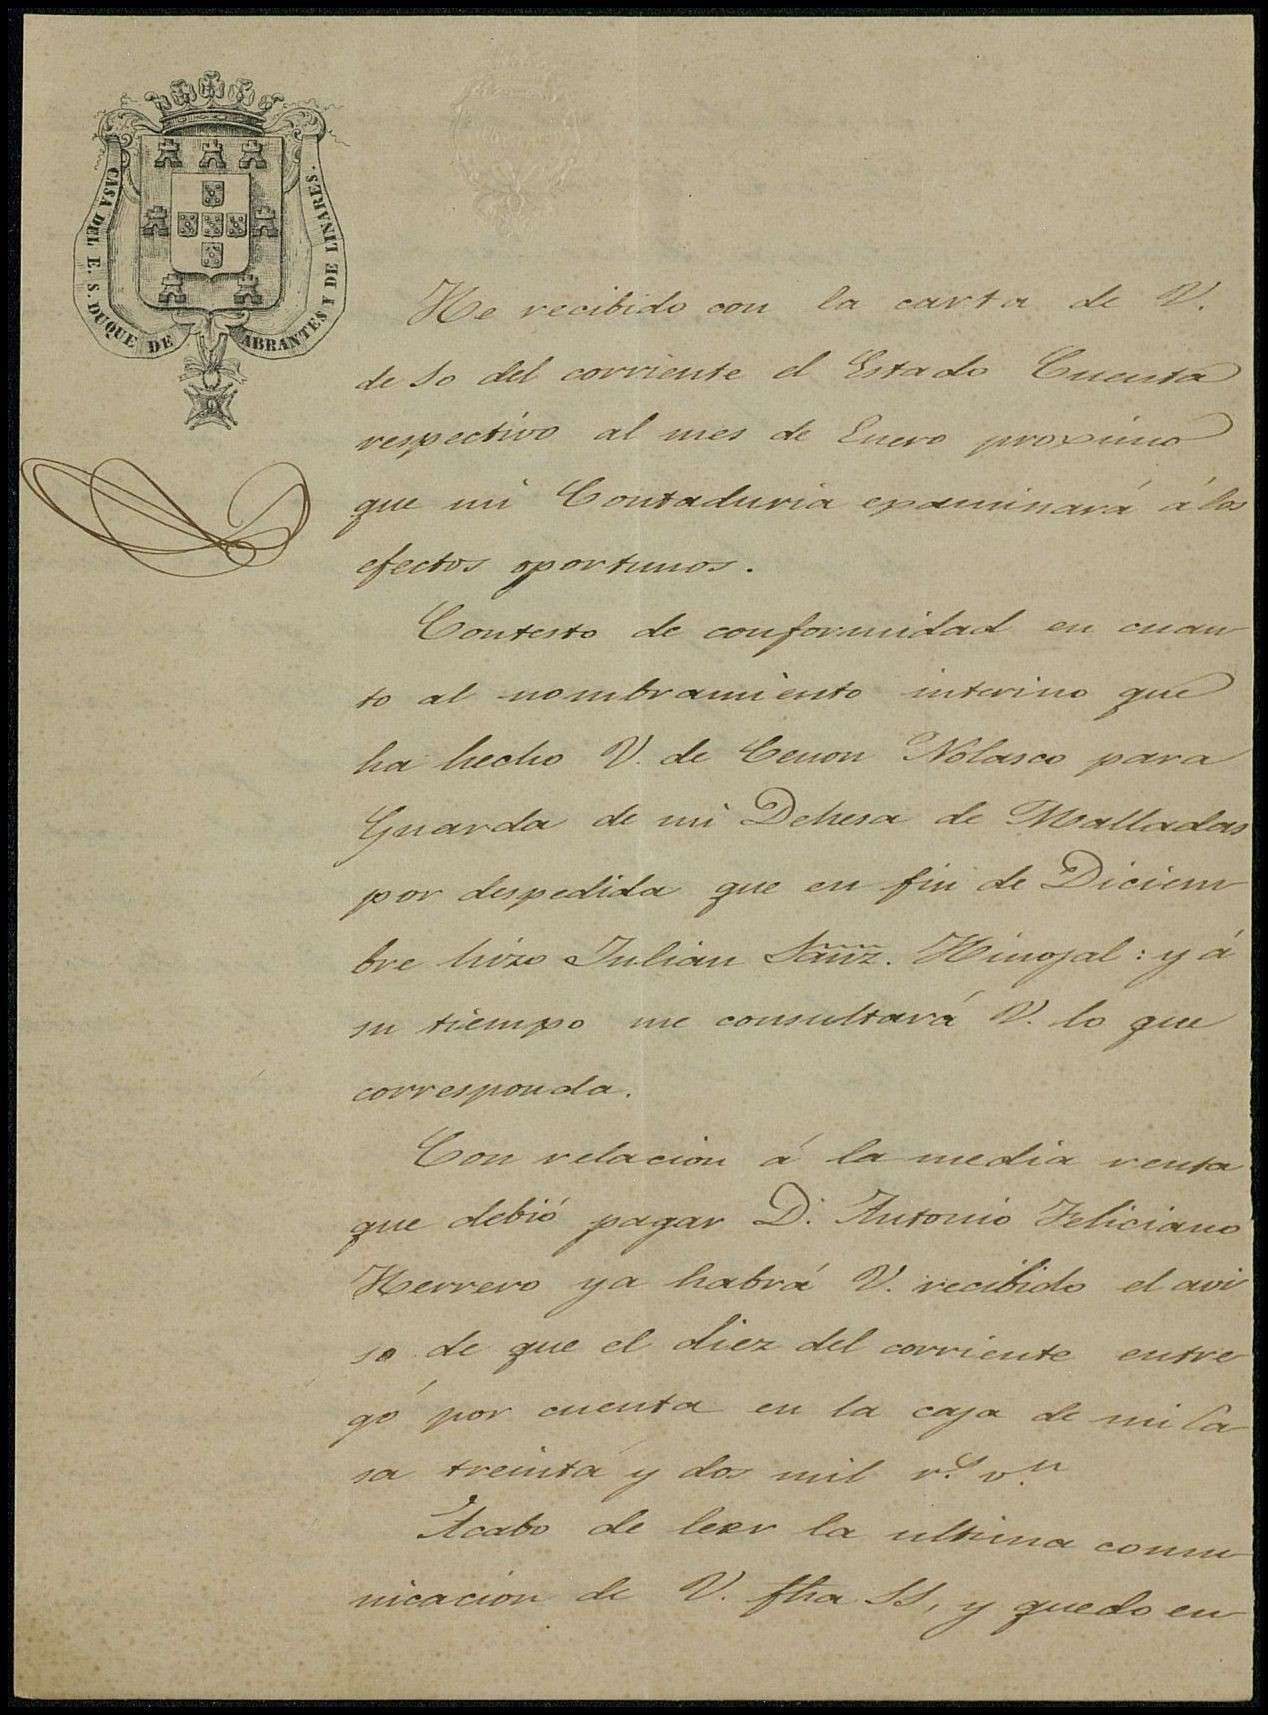 CASA DEL E. S. DUQUE DE ABRANTES Y DE LINARES.
He recibido con la carta de V.
de 10 del corriente el Estado Cuenta
respectivo al mes de Enero proximo
que mi Contaduria examinará á los
efectos oportunos.
Contesto de conformidad en cuan
to al nombramiento interino que
ha hecho V. de Cenon Nolasco para
Guarda de mi Dehesa de Malladas
por despedida que en fin de Diciem
bre hizo Julian Sanz. Hinojal: y á
su tiempo me consultará V. lo que
corresponda.
Con relacion á la media renta
que debió pagar D. Antonio Feliciano
Herrero ya habrá V. recibido el avi
so de que el diez del corriente entre
gó por cuenta en la caja de mi Ca
sa treinta y dos mil r.s v.n
Acabo de leer la ultima comu
nicacion de V. fha 11, y quedo en